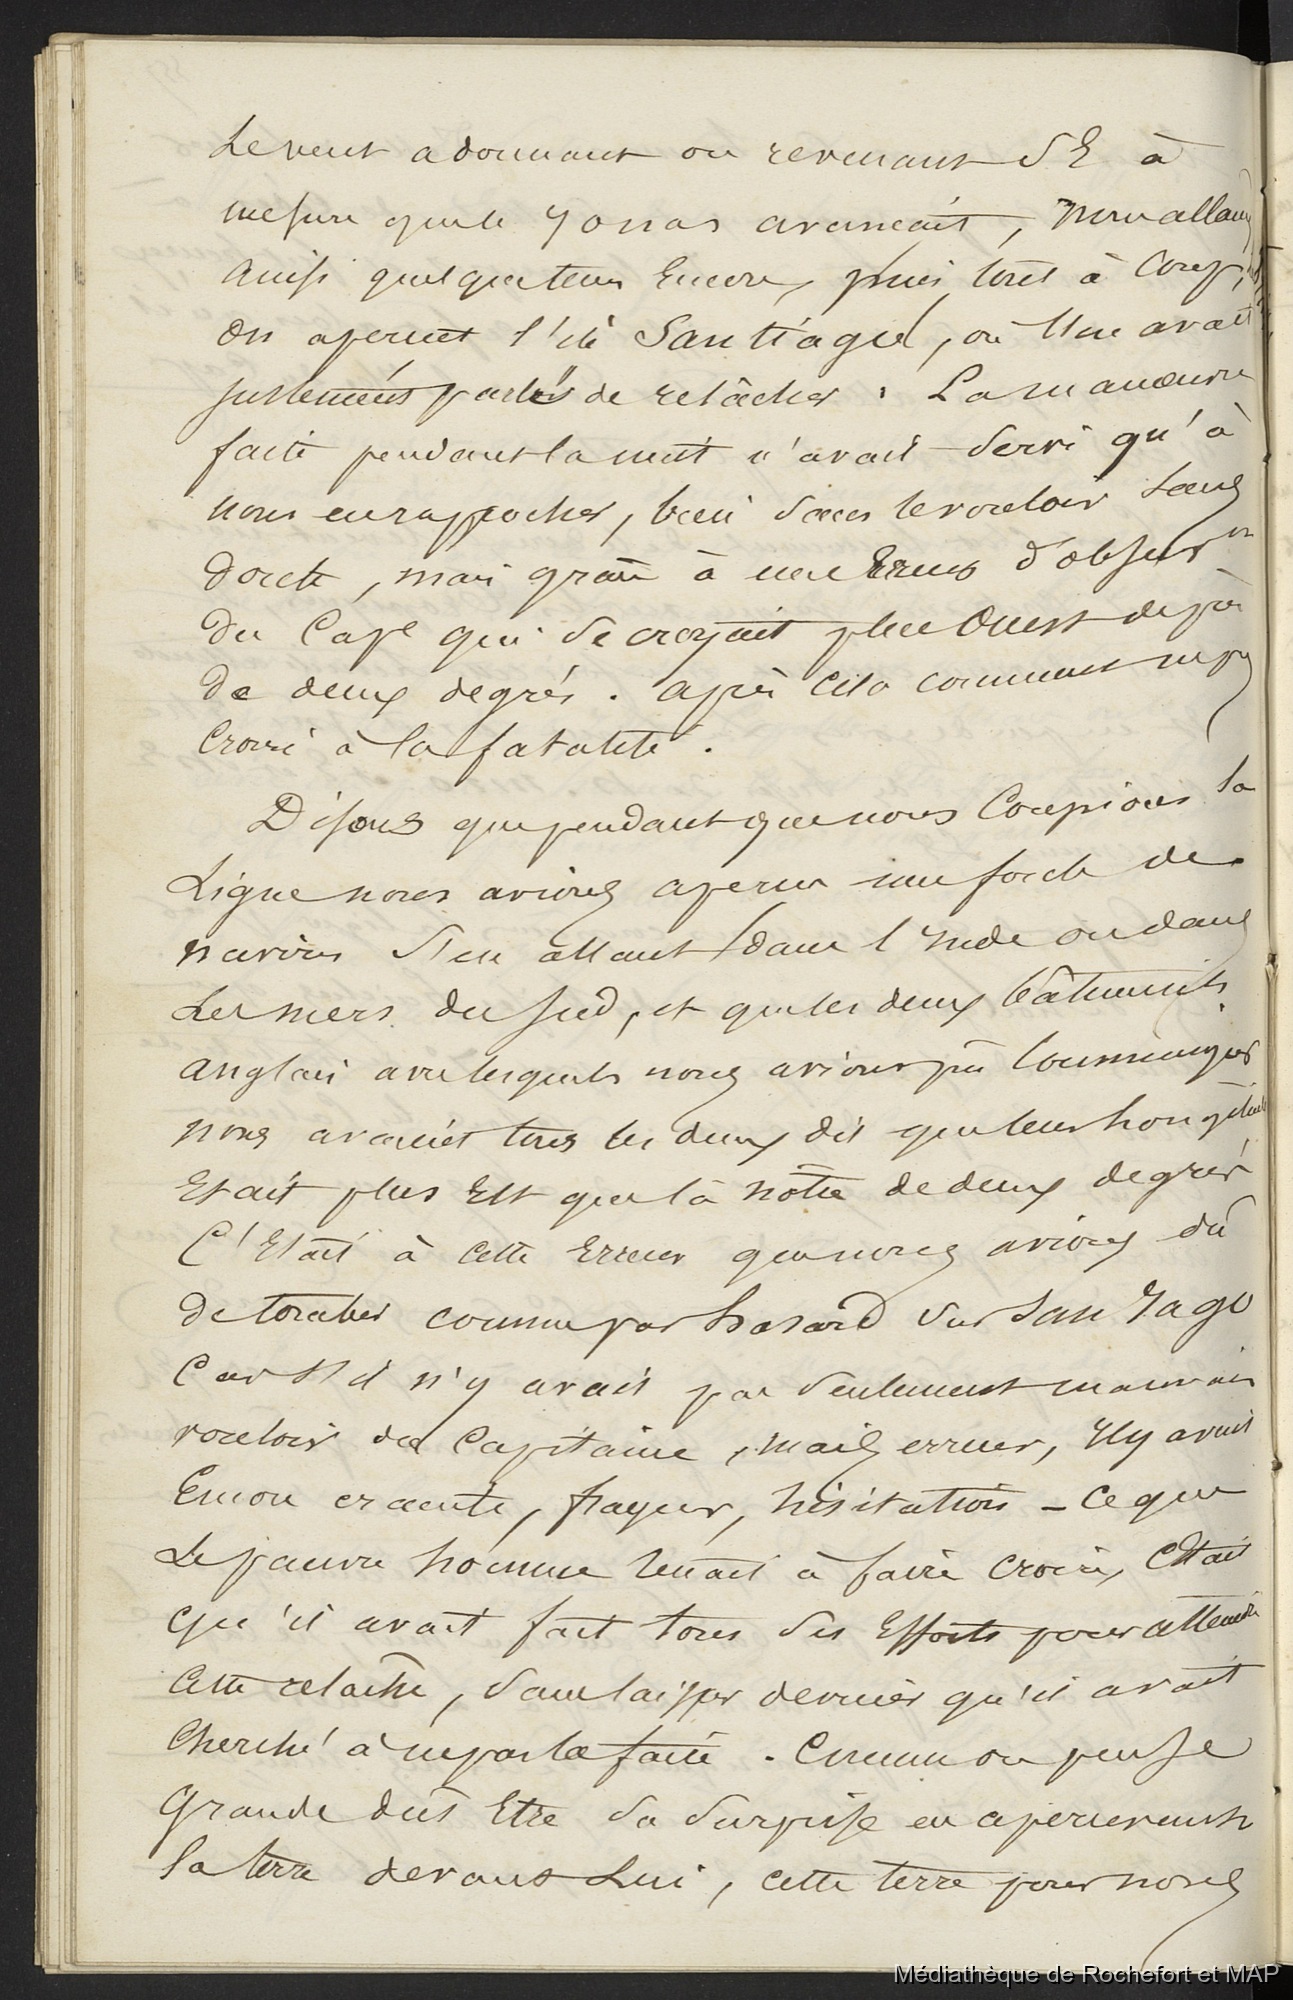 Le vent adonnant ou revenant S E à
mesure que le Jonas avançait, nous allam
ainsi quelque tems Encore, puis tout à Coup,
on aperçut l'île Santiague, où l'on avait
justement parlé de relâcher. La manœuvre
faite pendant la nuit n'avait servi qu'à
nous en rapprocher, bien sans le vouloir sans
doute, mais grâce à une Erreur d'observon
du Cape qui se croyait plus Ouest de près
de deux degrés. après cela comment ne pas
Croire à la fatalité.
Disons que pendant que nous Coupions la
Ligne nous avions aperçu une foule de
navires s'en allant dans l'Inde ou dans
Les mers du Sud, et que les deux bâtiments
anglais avec lesquels nous avions pu Communiquer
nous avaient tous les deux dit que leur longitude
Etait plus Est que la nôtre de deux degrés
C'Etait à cette Erreur que nous avions dû
de tomber comme par hasard sur San Yago
Car s'il n'y avait pas seulement mauvais
vouloir du Capitaine, mais erreur, Il y avait
Encore crainte, frayeur, hésitation - ce que
Le pauvre homme tenait à faire croire, C'Etait
qu'il avait fait tous ses Efforts pour atteindre
cette relâche, sans laisser deviner qu'il avait
Cherché à ne pas la faire. Comme on pense
Grande dut Etre sa surprise en apercevant
la terre devant Lui, cette terre pour nous
Médiathèque de Rochefort et MAP